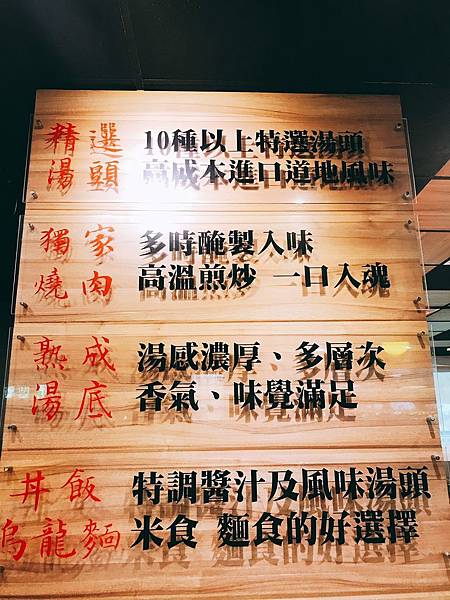 精選
湯頭
10種以上特選湯頭
高成本進口道地風味
獨家
燒肉
多時醃製入味
高溫煎炒 一口入魂
熟成
湯底
湯感濃厚、多層次
香氣、味覺滿足
丼飯
烏龍麵
特調醬汁及風味湯頭
米食 麵食的好選擇